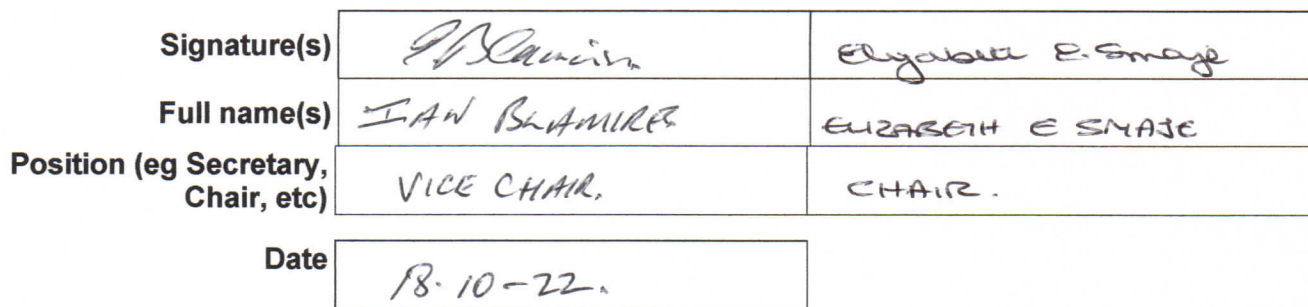 Signature(s) I Blamires Elizabeth E. Smaje
Full name(s) IAN BLAMIRES ELIZABETH E SMAJE
Position (eg Secretary, Chair, etc) VICE CHAIR. CHAIR.
Date 18.10-22.